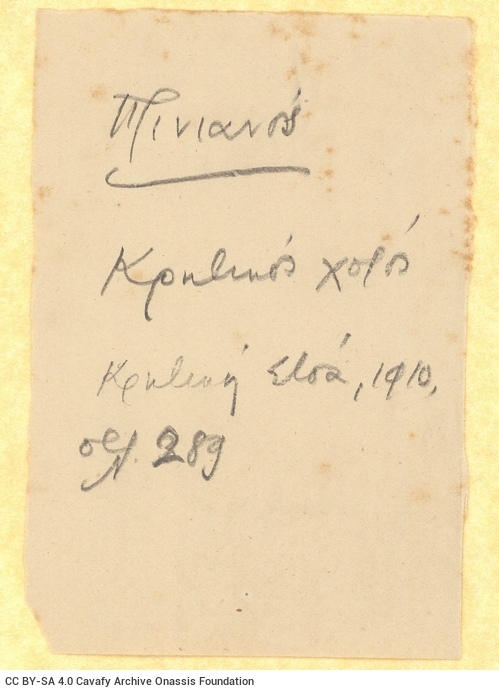 Πινιανός
Κρητικός χορός
Κρητική Στοά, 1910,
σελ. 289
CC BY-SA 4.0 Cavafy Archive Onassis Foundation